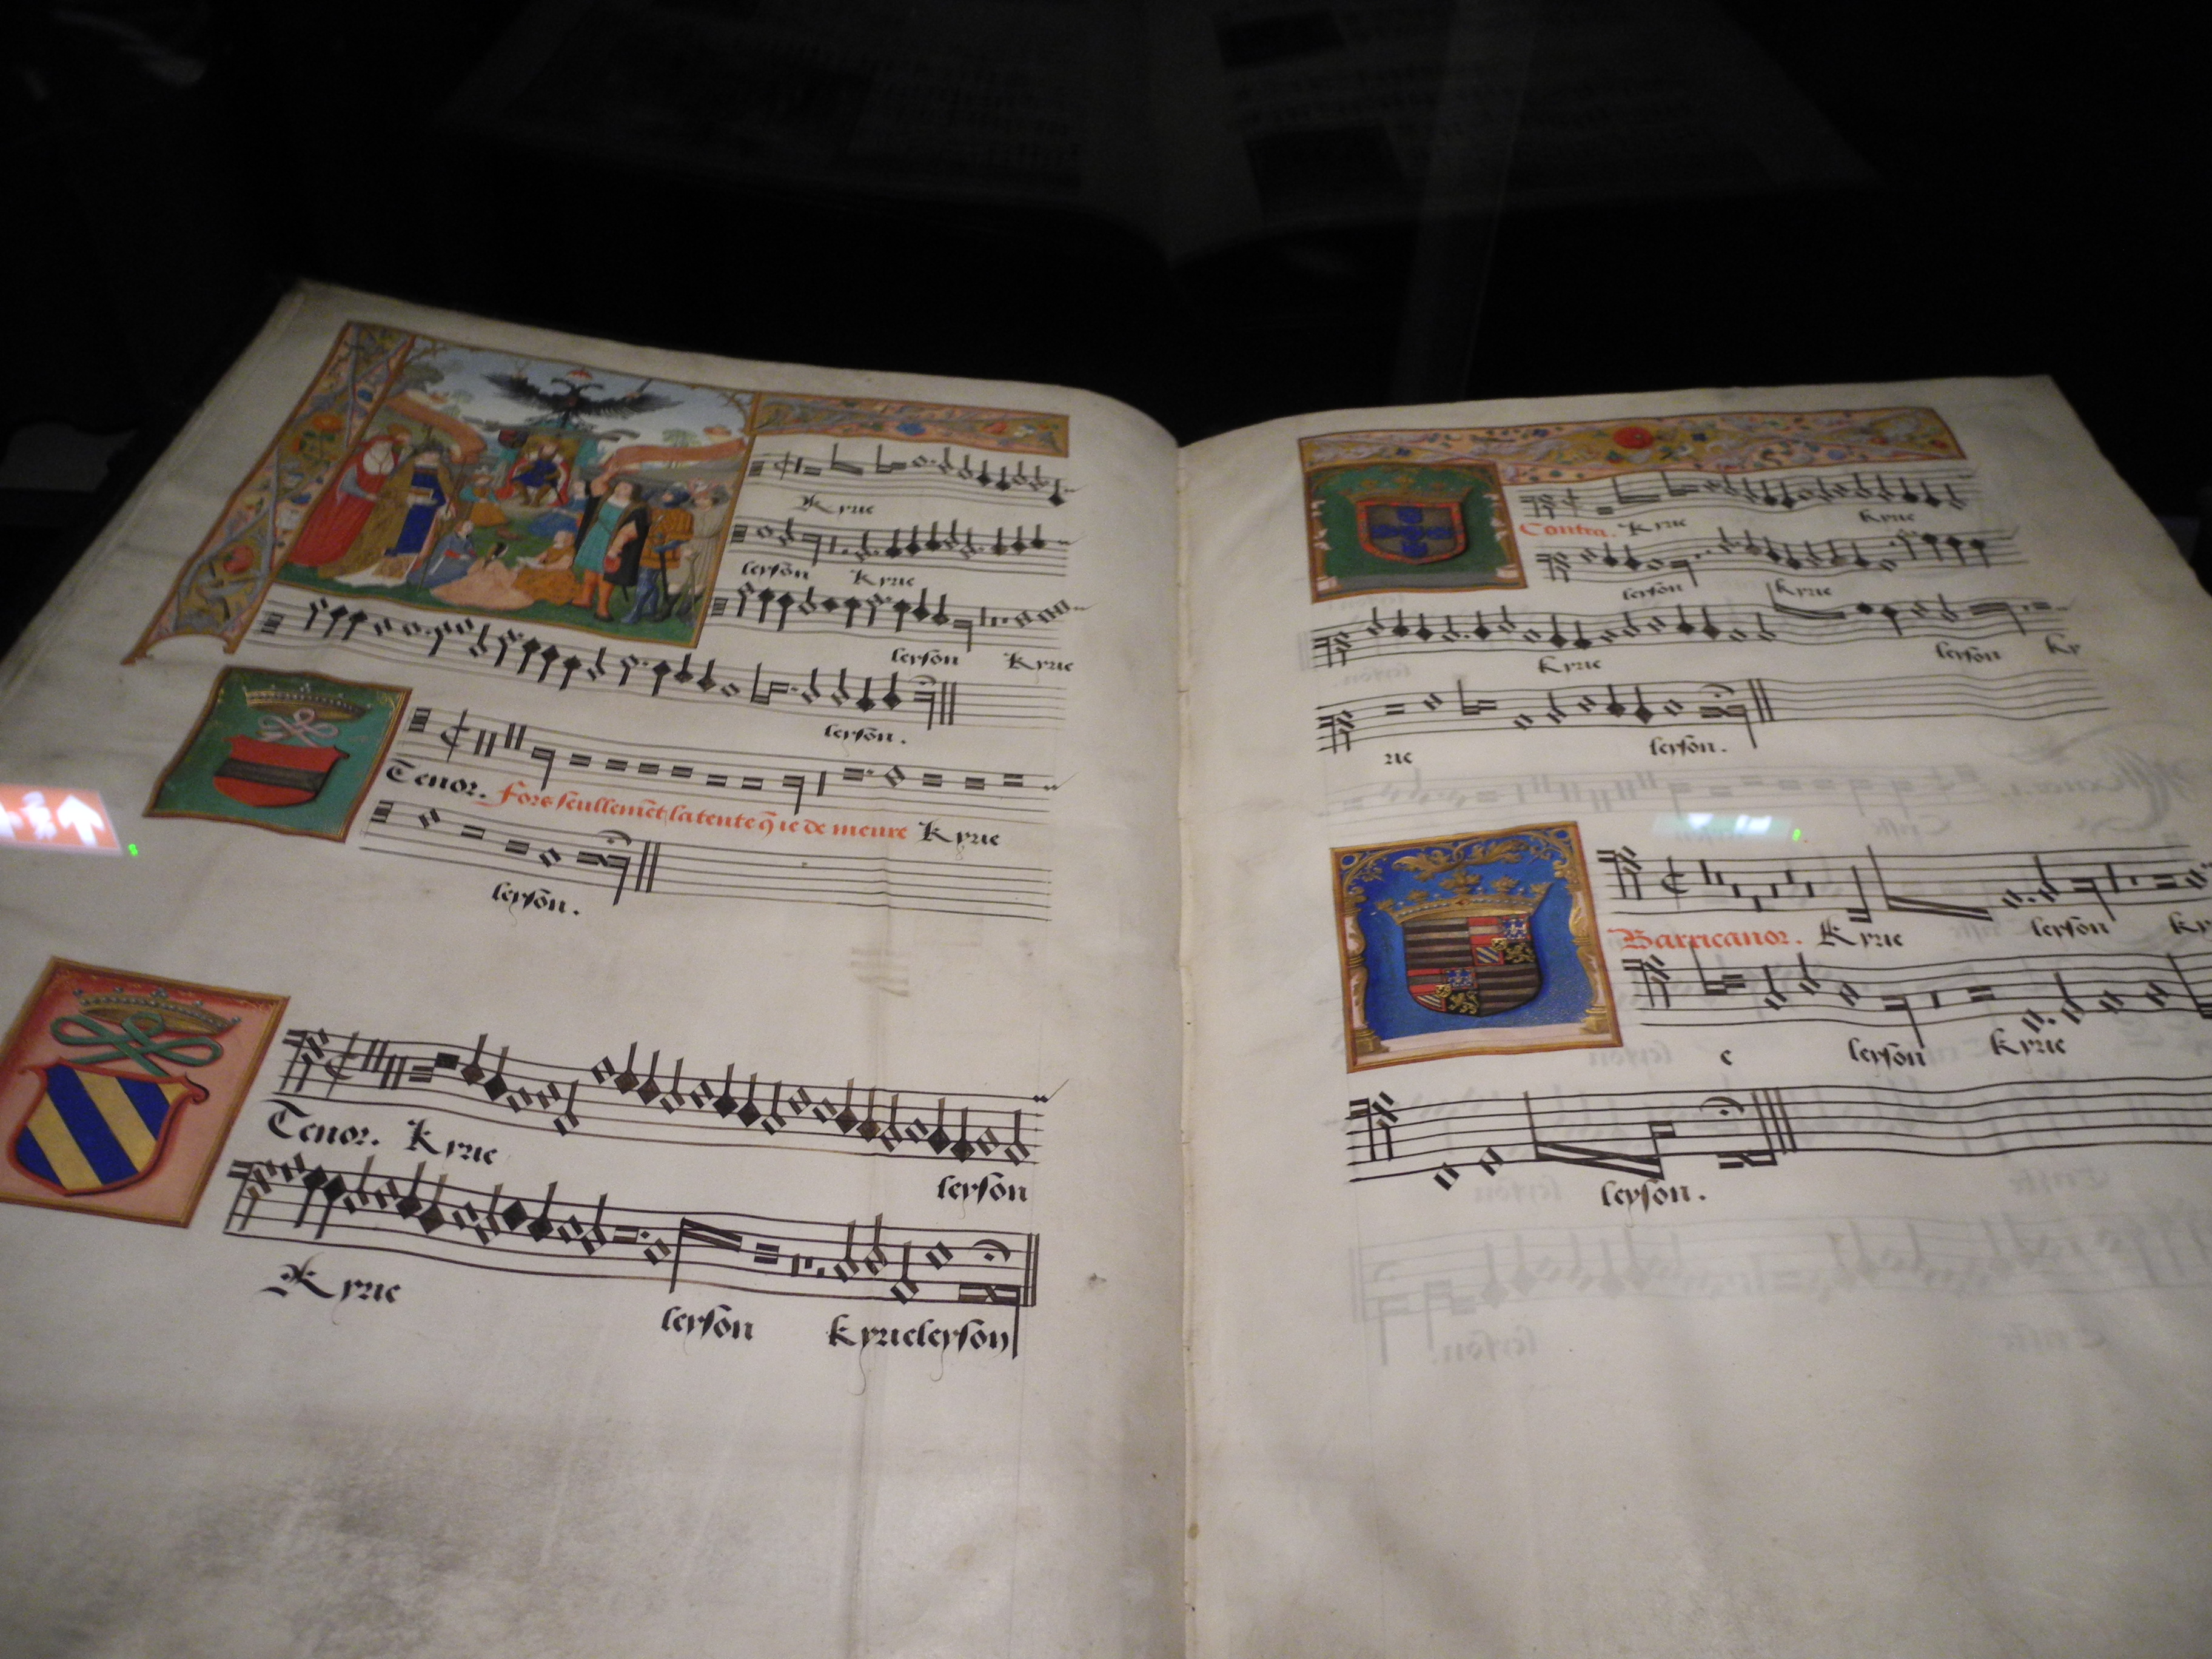 Kyrie
leyson Kyrie
leyson Kyrie
leyson.
Tenor. Fors seullemēt latente q̄ ie de meure Kyrie
leysōn.
Tenor. Kyrie
leysōn
Kyrie leysōn kyrieleyson
Contra. Kyrie Kyrie
leyson Kyrie
Kyrie leyson Ky
rie leyson.
Barricanor. Kyrie leyson ky
e leyson kyrie
leyson.